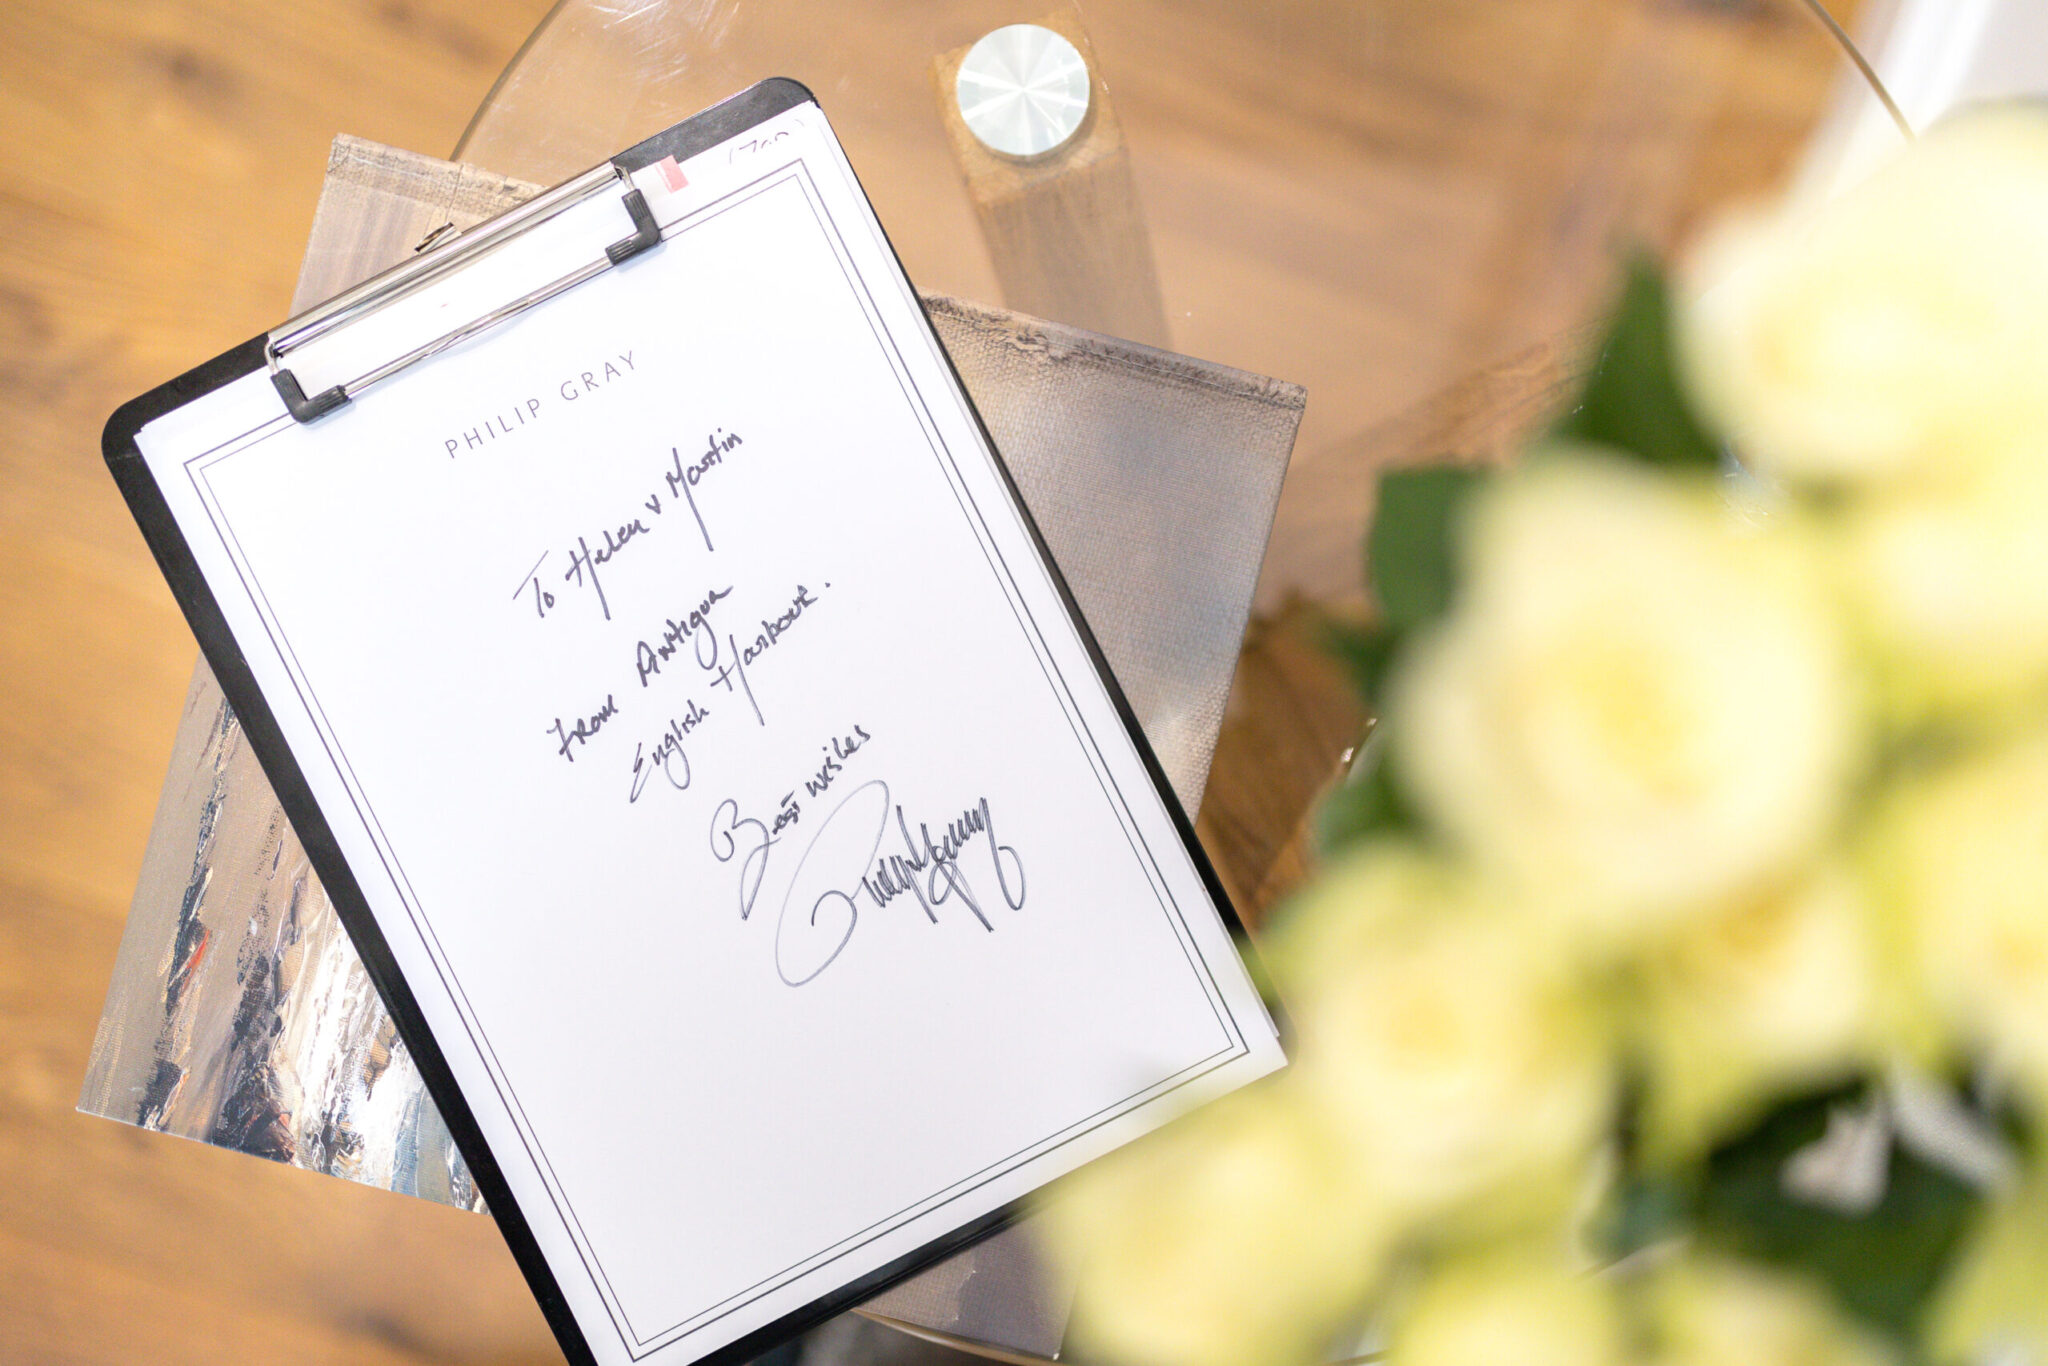 PHILIP GRAY
To Helen & Martin
From Antigua
English Harbour.
Best wishes
Philip Gray